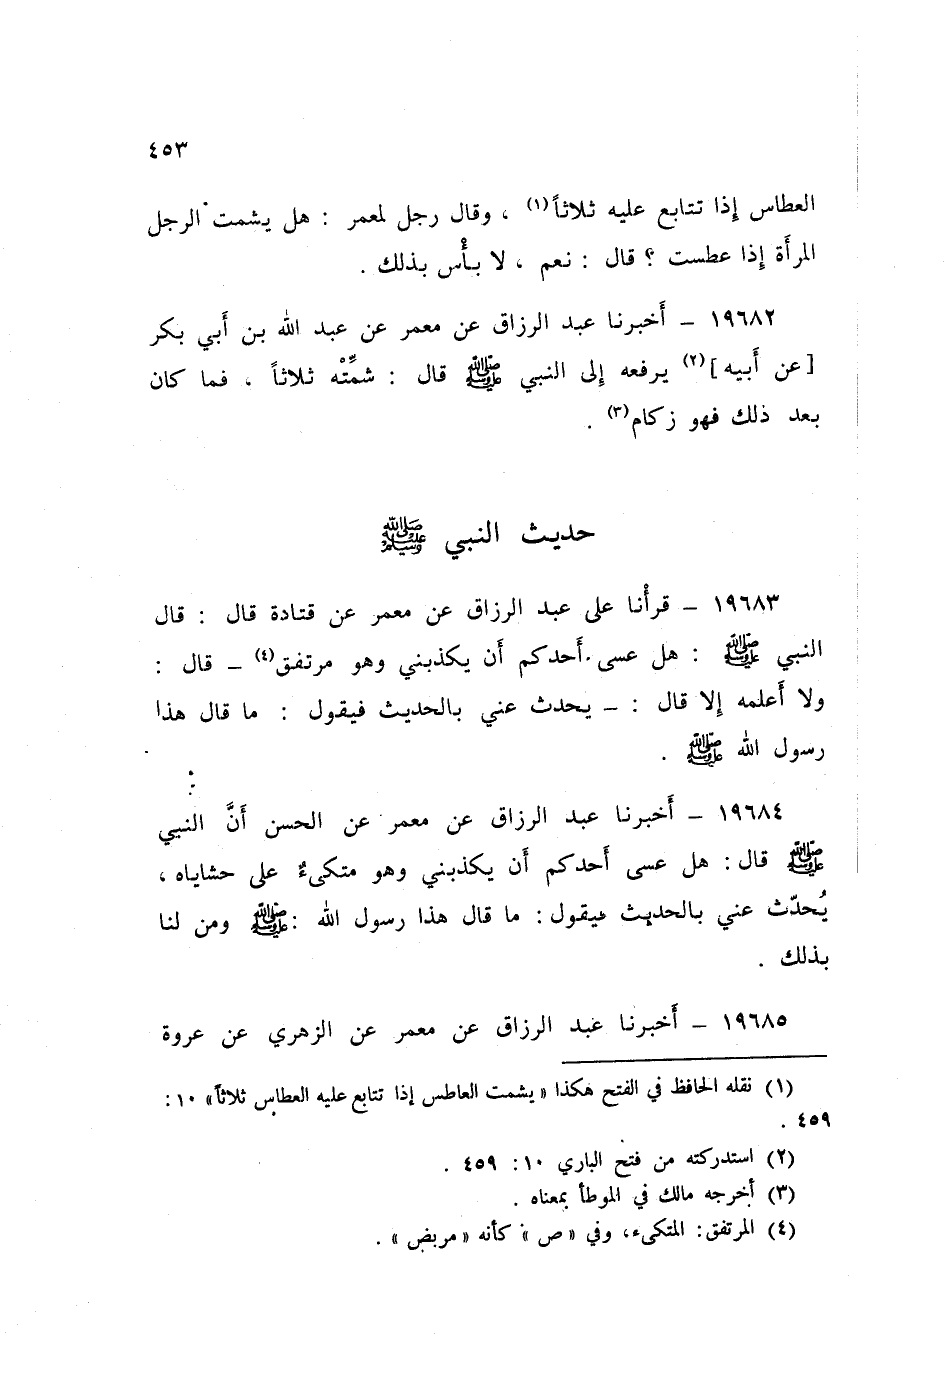 ٤٥٣
العطاس إذا تتابع عليه ثلاثاً(١) ، وقال رجل لمعمر : هل يشمت الرجل
المرأة إذا عطست ؟ قال : نعم ، لا بأْس بذلك .
١٩٦٨٢ – أَخبرنا عبد الرزاق عن معمر عن عبد الله بن أَبي بكر
[عن أَبيه](٢) يرفعه إلى النبي ﷺ قال : شمِّتْه ثلاثاً ، فما كان
بعد ذلك فهو زكام(٣) .
حديث النبي ﷺ
١٩٦٨٣ – قرأْنا على عبد الرزاق عن معمر عن قتادة قال : قال
النبي ﷺ : هل عسى أَحدكم أَن يكذبني وهو مرتفق(٤) – قال :
ولا أَعلمه إلا قال : – يحدث عني بالحديث فيقول : ما قال هذا
رسول الله ﷺ .
١٩٦٨٤ – أَخبرنا عبد الرزاق عن معمر عن الحسن أَنَّ النبي
ﷺ قال : هل عسى أَحدكم أَن يكذبني وهو متكىءٌ على حشاياه ،
يُحدّث عني بالحديث فيقول : ما قال هذا رسول الله : ﷺ ومن لنا
بذلك .
١٩٦٨٥ – أَخبرنا عبد الرزاق عن معمر عن الزهري عن عروة
(١) نقله الحافظ في الفتح هكذا « يشمت العاطس إذا تتابع عليه العطاس ثلاثاً » ١٠ :
٤٥٩ .
(٢) استدركته من فتح الباري ١٠ : ٤٥٩ .
(٣) أخرجه مالك في الموطأ بمعناه .
(٤) المرتفق : المتكىء ، وفي « ص » كأنه « مريض » .